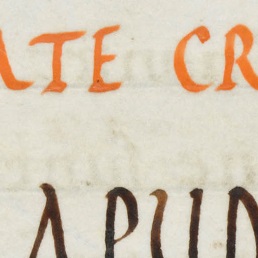 ATE CR
APUD